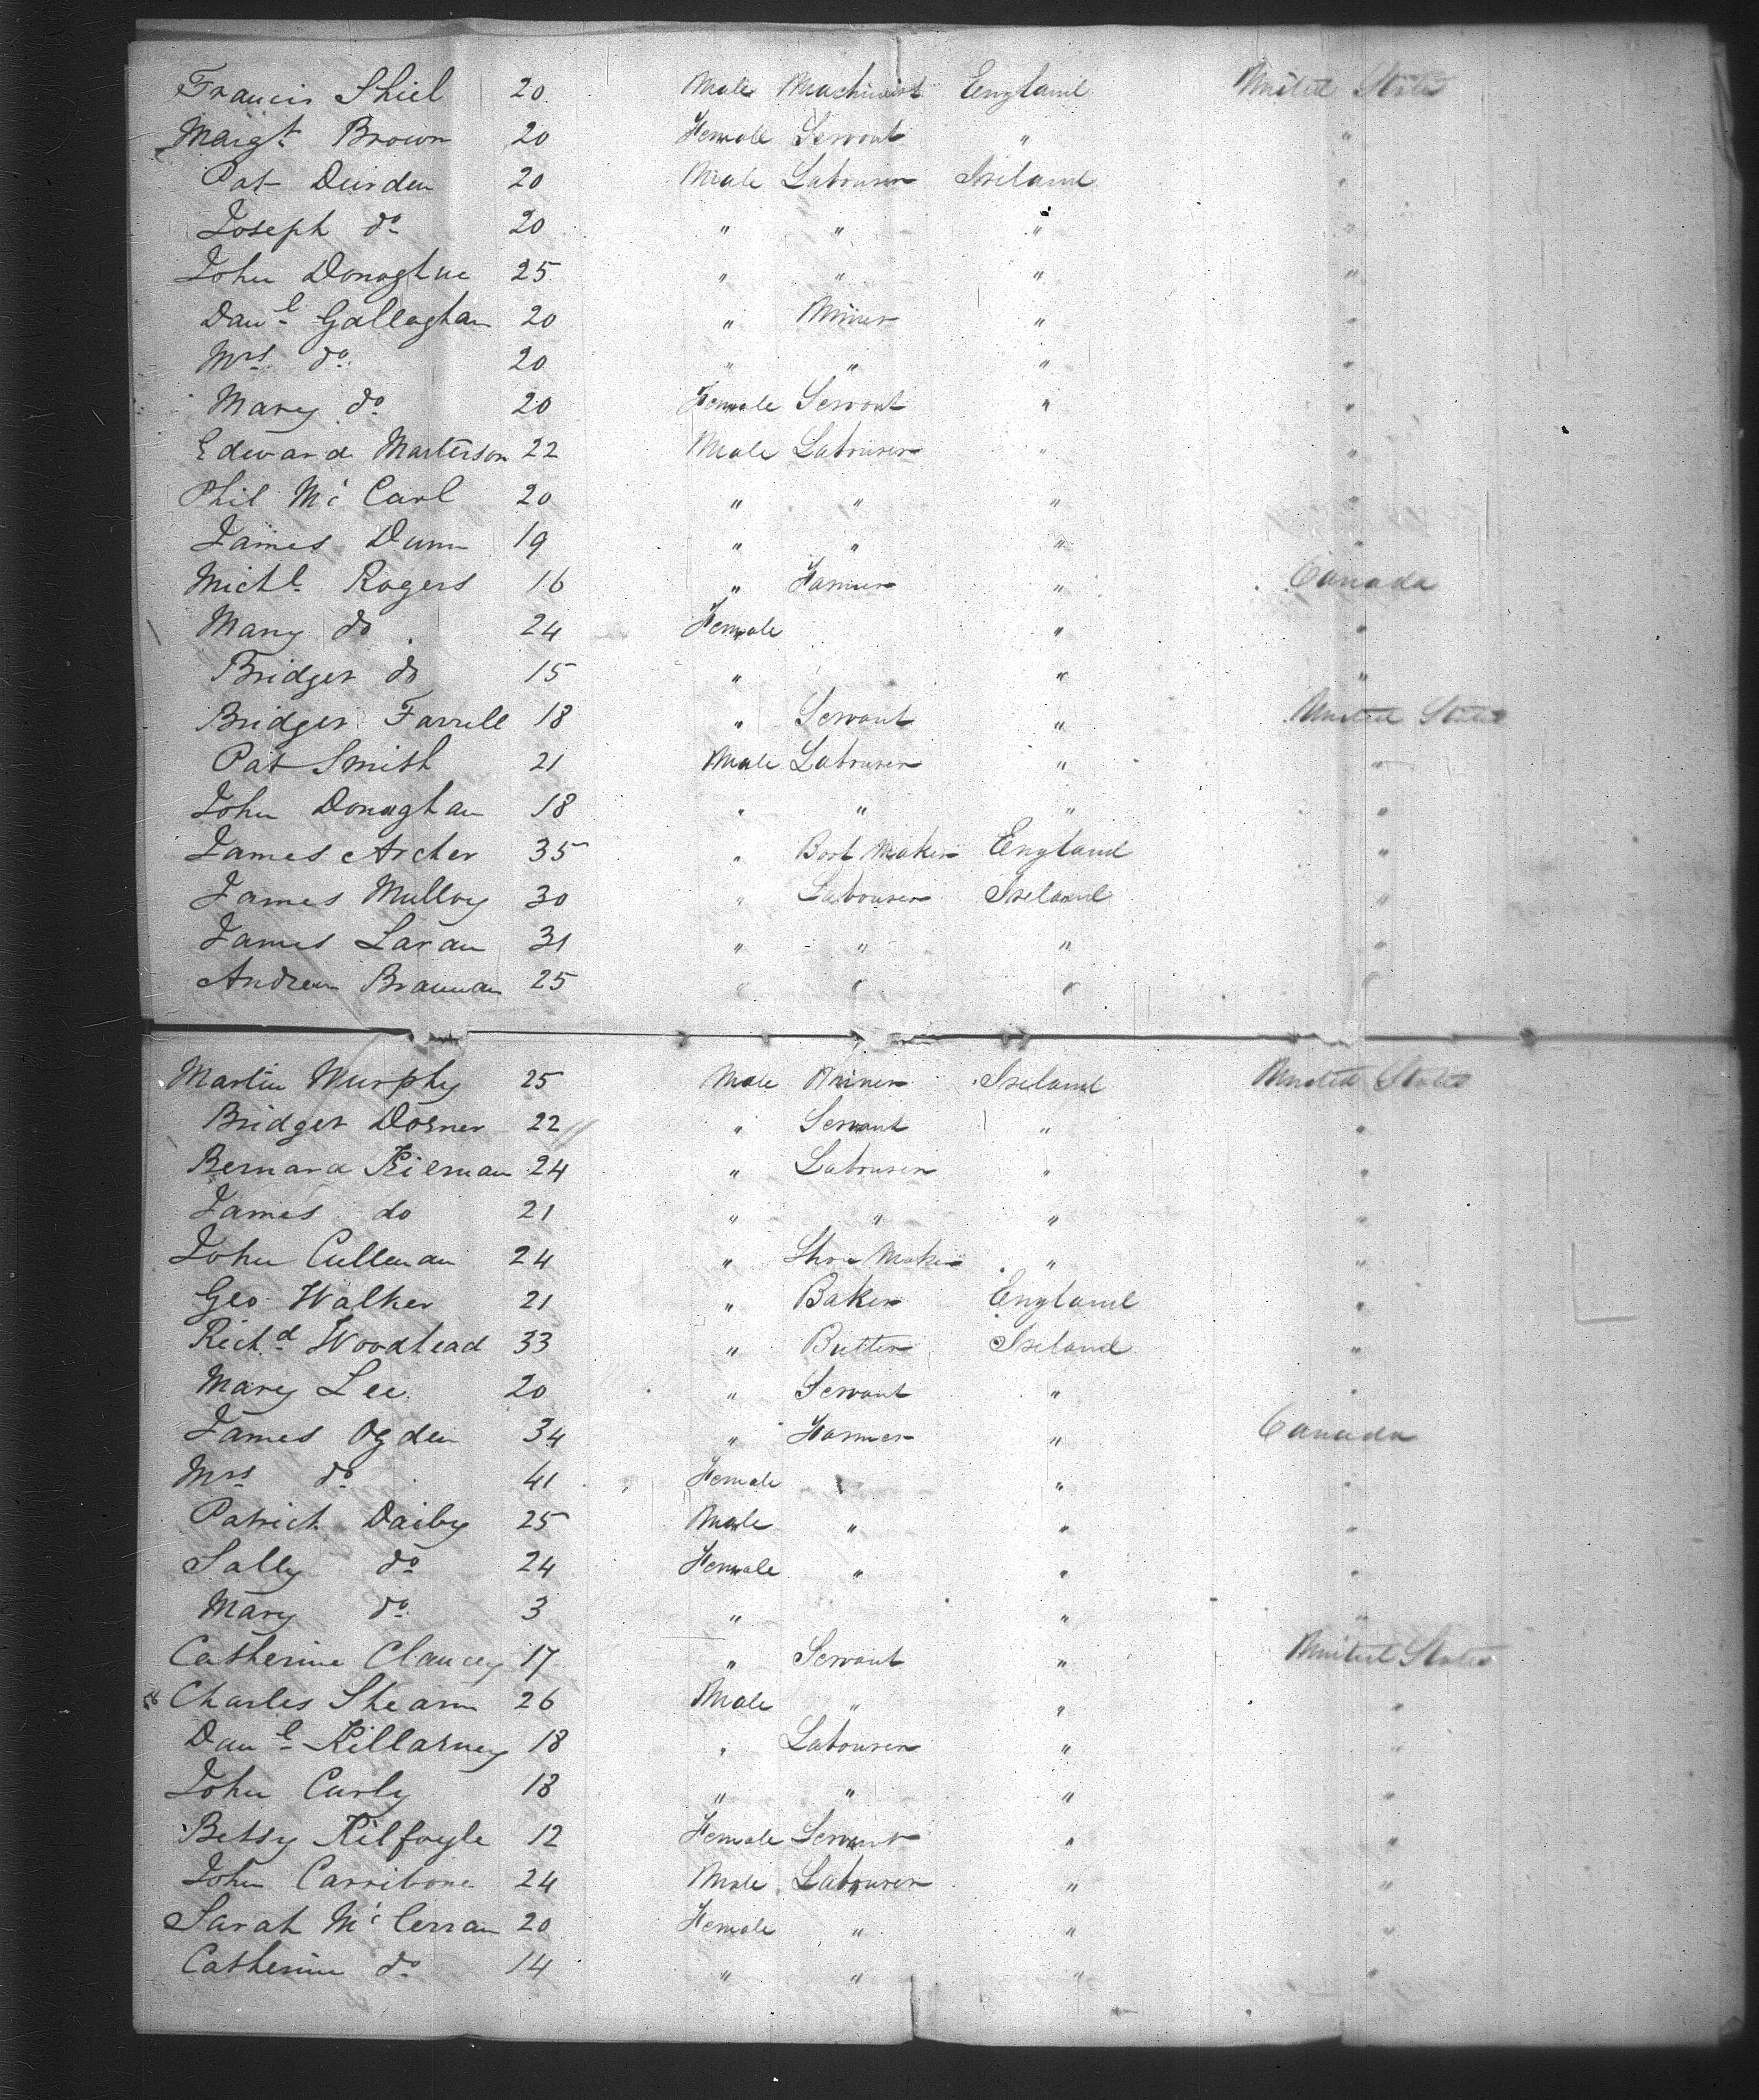 Francis Shiel 20 Male Machinist England United States
Margt Brown 20 Female Servant " "
Pat Durden 20 Male Labourer Ireland "
Joseph do 20 " " " "
John Donaghue 25 " " " "
Danl Gallaghan 20 " Miner " "
Mrs do 20 " " " "
Mary do 20 Female Servant " "
Edward Marterson 22 Male Labourer " "
Phil Mc Carl 20 " " " "
James Dunn 19 " " " "
Michl Rogers 16 " Farmer " Canada
Mary do 24 Female " "
Bridget do 15 " " "
Bridget Farrell 18 " Servant " United States
Pat Smith 21 Male Labourer " "
John Donaghan 18 " " " "
James Archer 35 " Boot Maker England "
James Mulloy 30 " Labourer Ireland "
James Laran 31 " " " "
Andrew Brannan 25 " " " "
Martin Murphy 25 Male Miner Ireland United States
Bridget Dorner 22 " Servant " "
Bernard Kiernan 24 " Labourer " "
James do 21 " " " "
John Cullenan 24 " Shoe Maker " "
Geo Walker 21 " Baker England "
Richd Woodhead 33 " Butler Ireland "
Mary Lee 20 " Servant " "
James Ogden 34 " Farmer " Canada
Mrs do 41 Female " " "
Patrick Dailey 25 Male " " "
Sally do 24 Female " " "
Mary do 3 " " "
Catherine Clancey 17 " Servant " United States
Charles Shearn 26 Male " " "
Danl Killarney 18 " Labourer " "
John Curly 18 " " " "
Betsy Kilfoyle 12 Female Servant " "
John Carribone 24 Male Labourer " "
Sarah Mc Cerran 20 Female " " "
Catherine do 14 " " " "